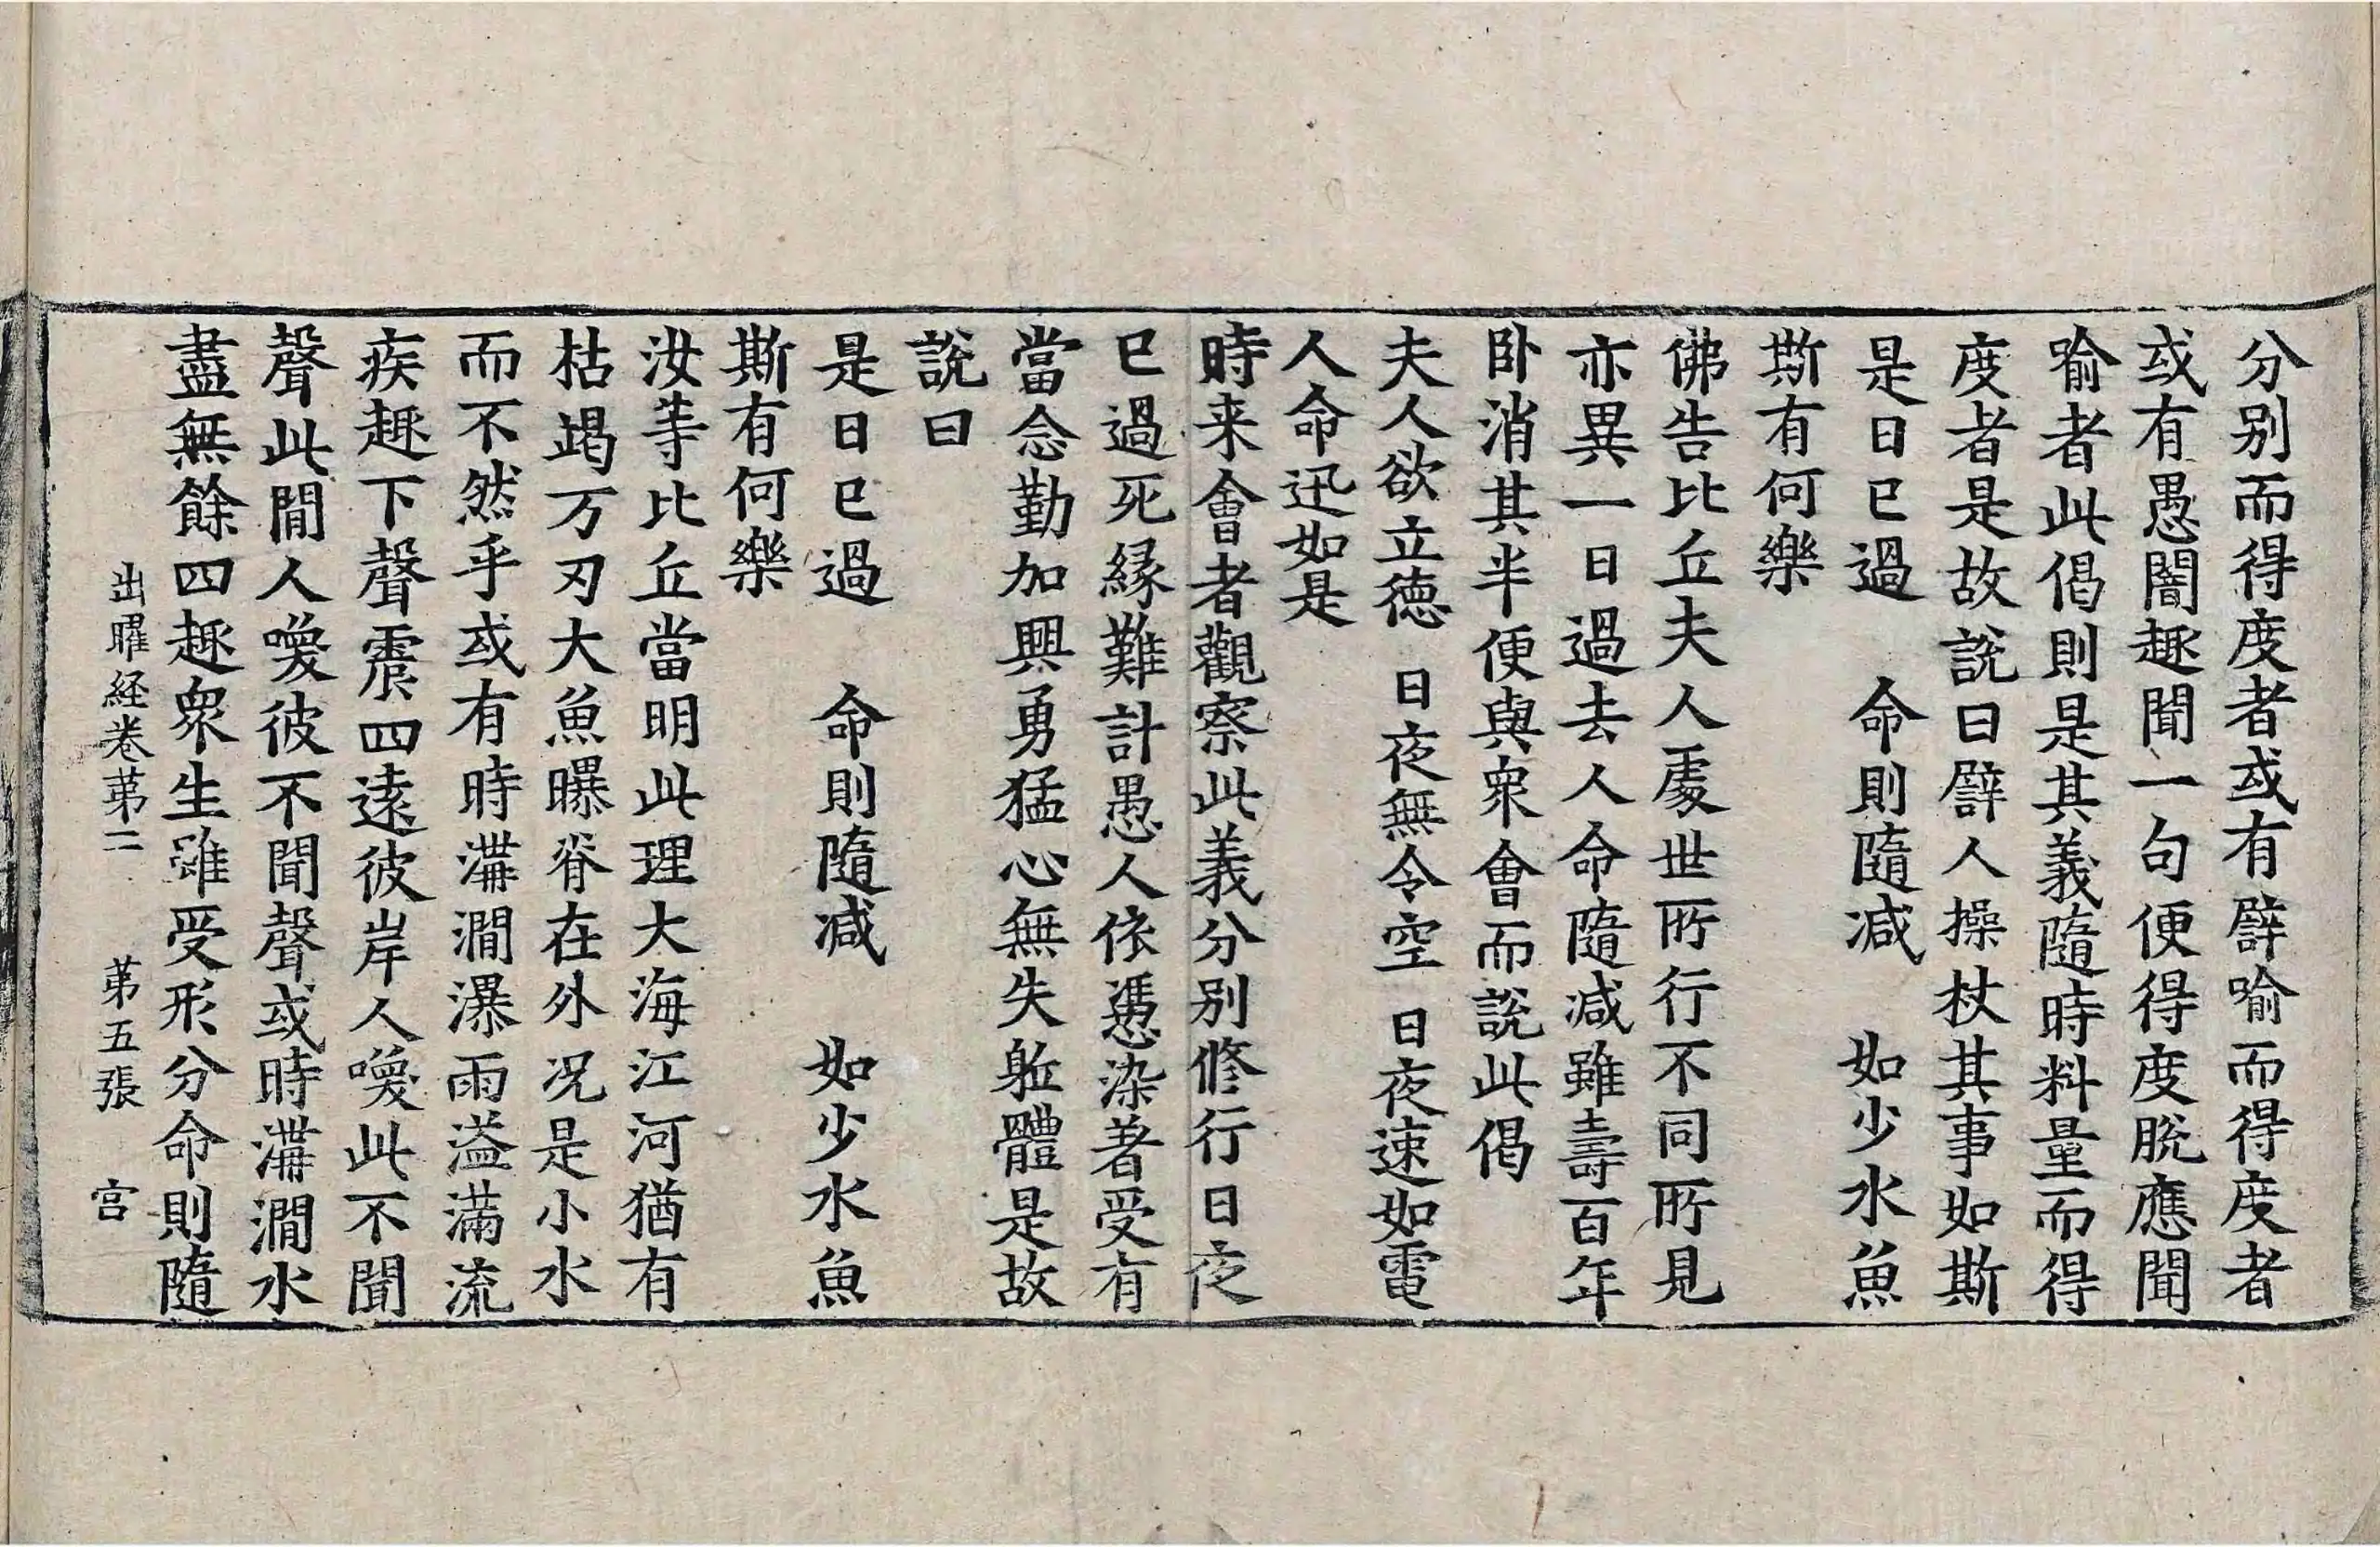 分別而得度者或有譬喻而得度者
或有愚闇趣聞一句便得度脫應聞
喻者此偈則是其義隨時料量而得
度者是故說曰譬人操杖其事如斯
是日已過　命則隨減　如少水魚
斯有何樂
佛告比丘夫人處世所行不同所見
亦異一日過去人命隨減雖壽百年
卧消其半便與眾會而說此偈
夫人欲立德　日夜無令空　日夜速如電
人命迅如是
時来會者觀察此義分別修行日夜
已過死緣難計愚人依憑染著受有
當念勤加興勇猛心無失軀體是故
說曰
是日已過　命則隨減　如少水魚
斯有何樂
汝等比丘當明此理大海江河猶有
枯竭万刃大魚曝脊在外况是小水
而不然乎或有時溝澗瀑雨溢滿流
疾趣下聲震四遠彼岸人喚此不聞
聲此間人喚彼不聞聲或時溝澗水
盡無餘四趣眾生雖受形分命則隨
出曜経卷第二　第五張　宫